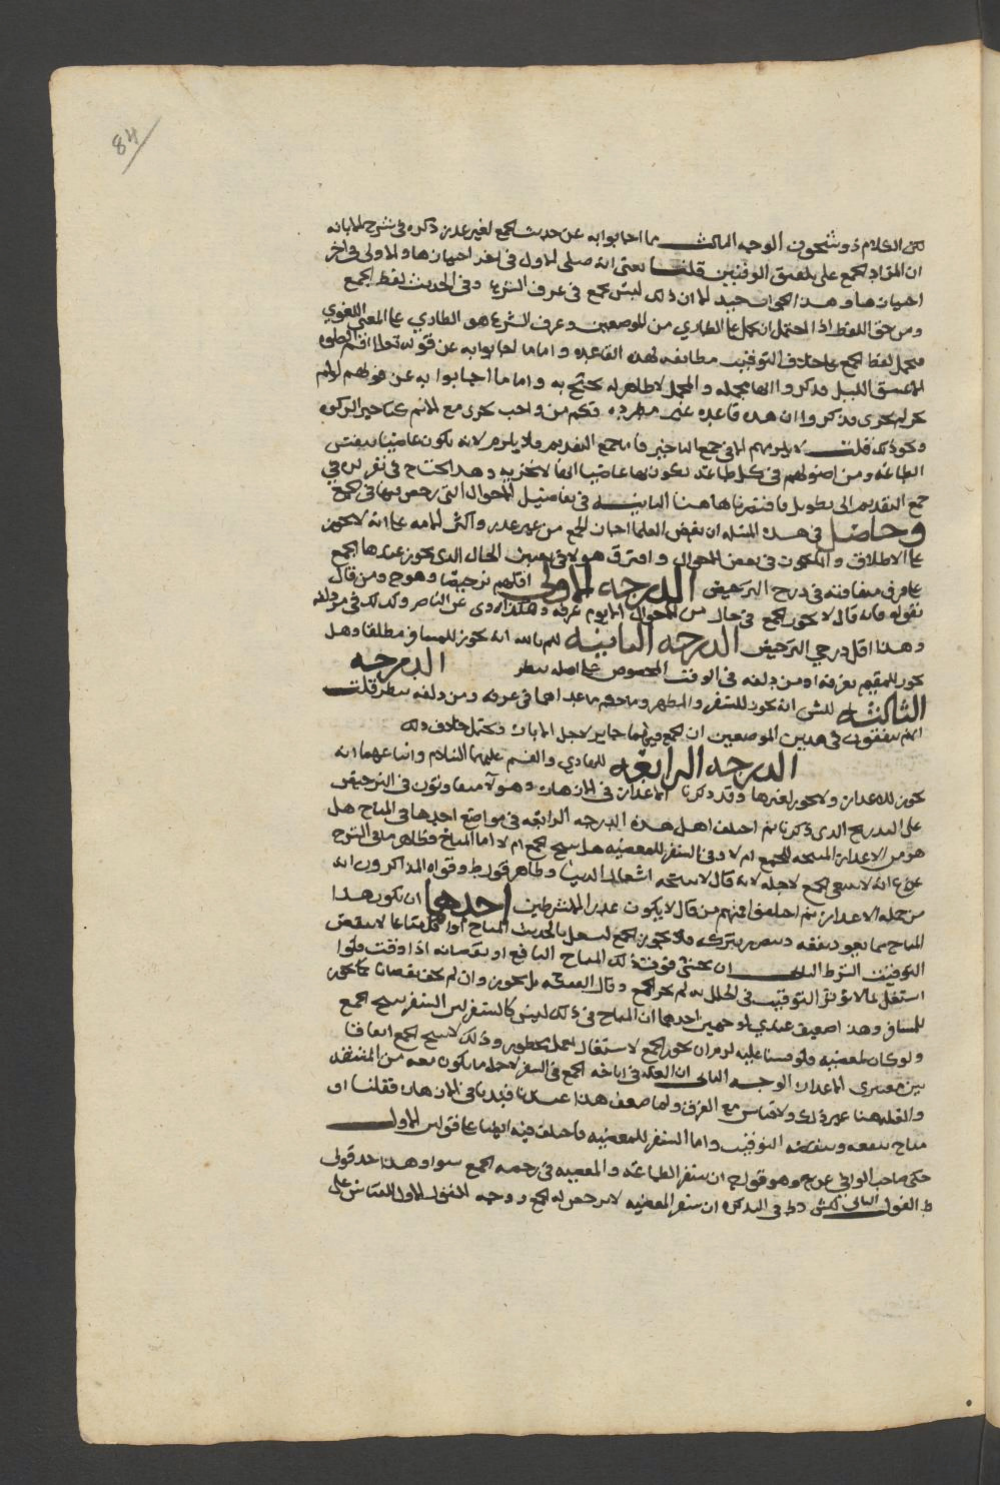 84
لكن الكلام ذو شجون الوجه الثالث ما اجابوا به عن حديث الجمع لغير عذر ذكره في شرح الابانه
ان المراد الجمع على الوقتين قلنا يعني انه صلى الاول في اخر احيانها والاولى في اخر
احيانها وهذا جيد الا ان ذلك ليس بجمع في عرف الشرع وفي الحديث لفظ الجمع
ومن حق اللفظ اذا احتمل ان يحمل على الطاري من الموضعين وعرف الشرع هو الطاري على المعنى اللغوي
فحمل لفظ الجمع على خلاف التوقيت مطابقه لهذه القاعده واما ما اجابوا به عن قوله تعالى اقم الصلوه
الى غسق الليل فذكروا انها مجمله والمجمل لا ظاهر له يحتج به واما ما اجابوا به عن قولهم لو اثم
لم يجزي فذكروا ان هذه قاعده غير مطرده فكم من واجب يجزي مع الاثم كتاخير الزكوه
ونحو ذلك قلت لا يلزمهم الا في جمع التاخير فاما جمع التقديم فلا يلزم لانه يكون عاصيا بنفس
الطاعه ومن اصولهم في كل طاعه يكون بها عاصيا انها لا تجزيه وهذا يحتاج في تقريره في
جمع التقديم الى تطويل فاقتصرنا هاهنا الثانيه في تفاصيل الاحوال التي رخص فيها في الجمع
وحاصل في هذه المسله ان بعض العلما اجاز الجمع من غير عذر واكثر الامه على انه لا يجوز
على الاطلاق والحكموه في بعض الاحوال وافترق هولا في تعيين الحال الذي يجوز عندها الجمع
على فرق متفاوته في درج الترخيص الدرجه الاولى اقلهم ترخيصا وهو ح ومن قال
بقوله فانه قال لا يجوز الجمع في حال من الاحوال الا يوم عرفه وهكذا روي عن الناصر وكذلك في مزدلفه
وهذا اقل درجي الترخيص الدرجه الثانيه للم بالله انه يجوز للمسافر مطلقا وهل
يجوز للمقيم بعرفه او مزدلفه في الوقت المخصوص على اصله ينظر الدرجه
الثالثه للش انه يجوز للسفر والمطر وما حكم ما عداهما في عرفه ومزدلفه ينظر قلت
انهم متفقون في هذين الموضعين ان الجمع فيهما جايز لاجل الاباث ويحتمل خلاف ذلك
الدرجه الرابعه للهادي والقسم عليهما السلام واتباعهما انه
يجوز للاعذار ولا يجوز لغيرها وقد ذكرنا الاعذار في الازهار وهولا متفاوتون في الترخيص
على التدريج الذي ذكرنا ثم اختلف اهل هذه الدرجه الرابعه في مواضع احدها في المباح هل
هو من الاعذار المبيحه للجمع ام لا وفي السفر للمعصيه هل يبيح الجمع ام لا اما المباح فظاهر ما في الشرح
عن ع انه لا ينبغي الجمع لاجله لانه قال لا يبيحه اشغال الدنيا وظاهر قول ط وقواه المذاكرون انه
من جمله الاعذار ثم اختلفوا فمنهم من قال لا يكون عذرا الا بشرطين احدهما ان يكون هذا
المباح مما يعود بنفعه ويتضرر بتركه فلا يجوز الجمع ليشغل بالحديث المباح او الاكل متاعا لا ينقص
التوقيت الشرط الثاني ان يخشى فوت ذلك المباح النافع او نقصانه اذا وقت فلو
استقل بما لا يوثر التوقيت في الخلل به لم يجز الجمع وقال الفقيه ح بل يجوز وان لم يخف نقصانا كما يجوز
للمسافر وهذا ضعيف عندي لوجهين احدهما ان المباح في ذلك ليس كالسفر لان السفر يبيح الجمع
ولو كان لمعصيه فلو قسنا عليه لزم ان يجوز الجمع لاشتغال بعمل محظور وذلك لا يبيح الجمع اتفاقا
بين معتبري الاعذار الوجه الثاني ان العله في اباحه الجمع في السفر لاجله ما يكون معه من المشقه
والعله هنا غير ذلك ولا قياس مع الفرق ولما ضعف هذا عندنا قيدنا في الازهار فقلنا او
مباح ينفعه وينقصه التوقيت واما السفر للمعصيه فاختلف فيه ايضا على قولين الاول
حكى صاحب الوافي عن ع وهو قول ح ان سفر الطاعه والمعصيه في رخصه الجمع سوا وهذا احد قولي
ط القول الثاني للش وط في التذكره ان سفر المعصيه لا يرخص له الجمع ووجه القول الاول القياس على